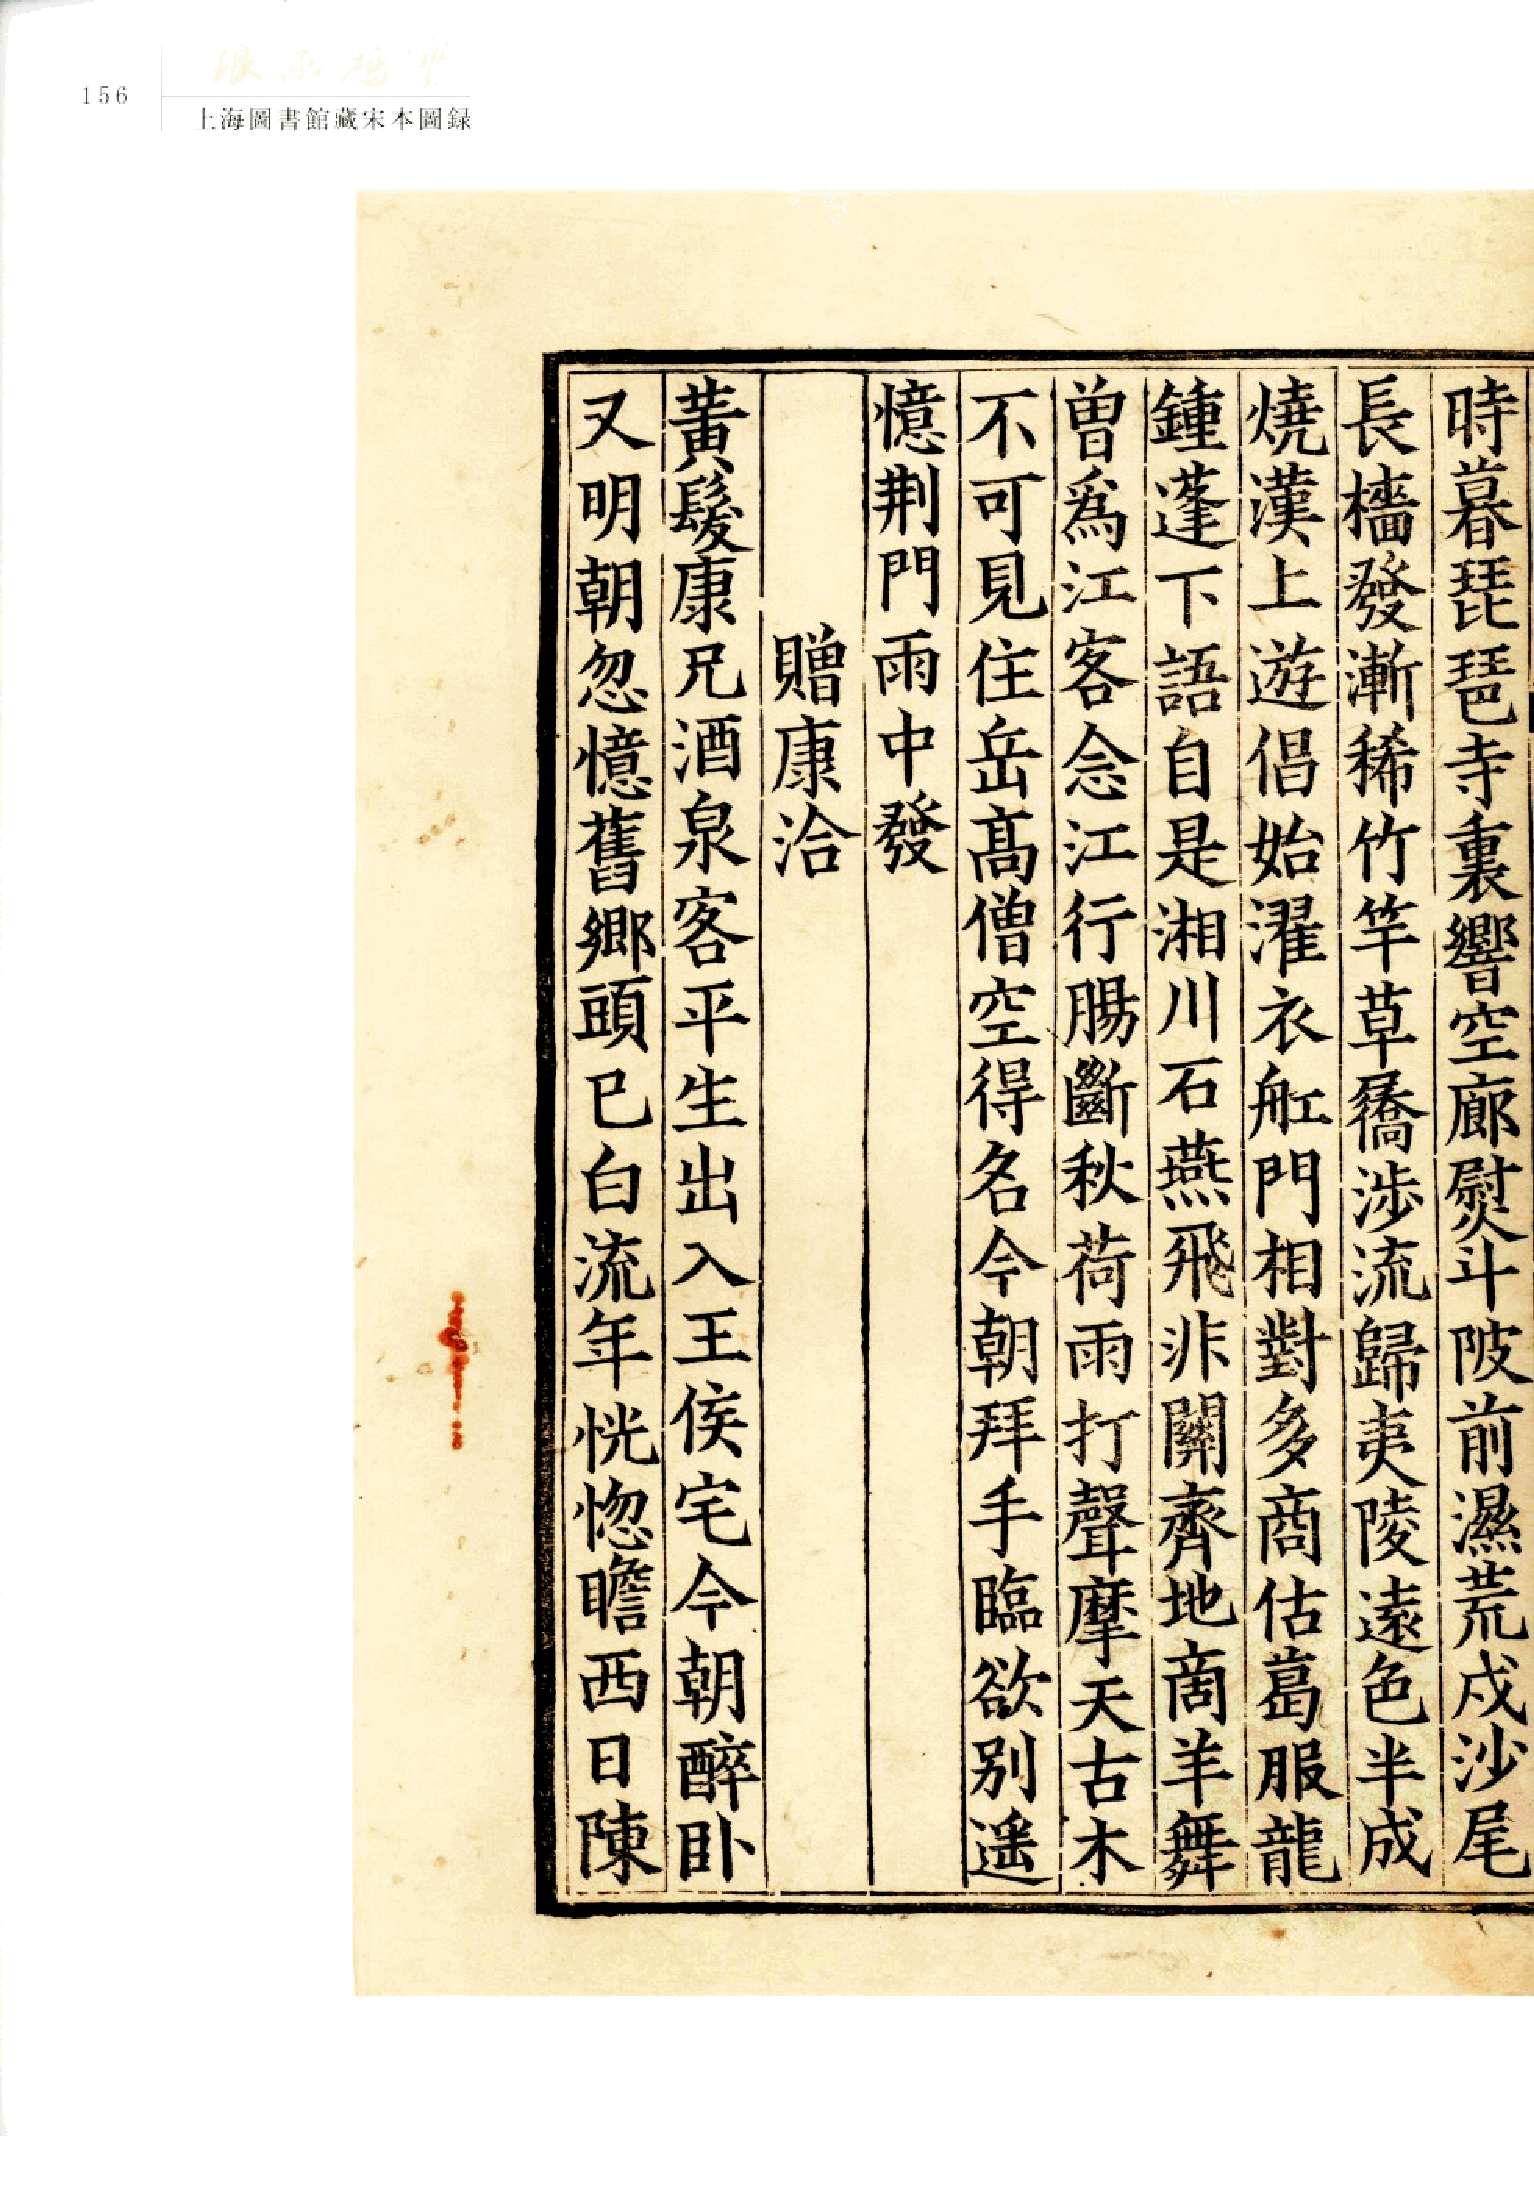 156
上海圖書館藏宋本圖録
時暮琵琶寺裏響空廊熨斗陂前濕荒戍沙尾
長檣發漸稀竹竿草屩渉流歸夷陵遠色半成
燒漢上遊倡始濯衣舡門相對多商估葛服龍
鍾蓬下語自是湘川石燕飛非關齊地商羊舞
曾爲江客念江行腸斷秋荷雨打聲摩天古木
不可見住岳髙僧空得名今朝拜手臨欲别遥
憶荆門雨中發
贈康洽
黄髪康兄酒泉客平生出入王侯宅今朝醉卧
又明朝忽憶舊鄉頭已白流年恍惚瞻西日陳